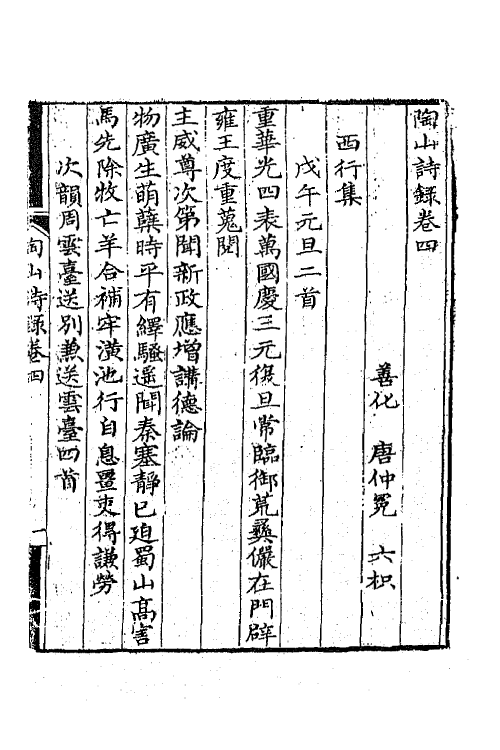 陶山詩録卷四
善化　唐仲冕　六枳
西行集
戊午元旦二首
重華光四表萬國慶三元復旦常臨御荒彝儼在門辟
雍王度重蒐閱
主威尊次第聞新政應增講德論
物廣生萌蘖時平有繹騷遥聞秦塞靜已迫蜀山高害
馬先除牧亡羊合補牢潢池行自息置吏得謙勞
次韻周雲臺送别兼送雲臺四首
陶山詩録卷四
一